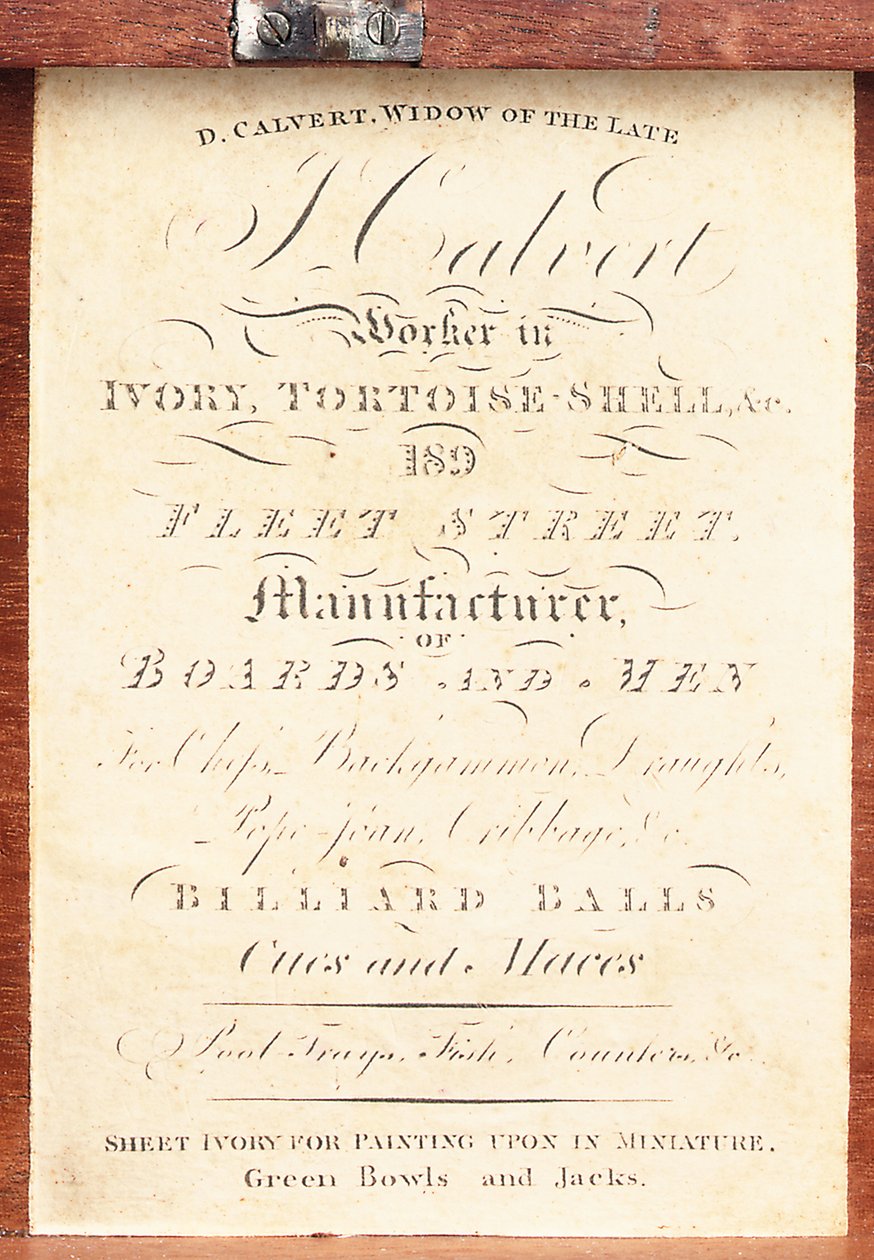 D. CALVERT, WIDOW OF THE LATE
I Calvert
Worker in
IVORY, TORTOISE-SHELL, &c.
189
FLEET STREET,
Manufacturer,
OF
BOARDS AND MEN
For Chefs, Backgammon, Draughts,
Pope-joan, Cribbage, &c.
BILLIARD BALLS
Cues and Maces
Pool Trays, Fish, Counters, &c
SHEET IVORY FOR PAINTING UPON IN MINIATURE.
Green Bowls and Jacks.